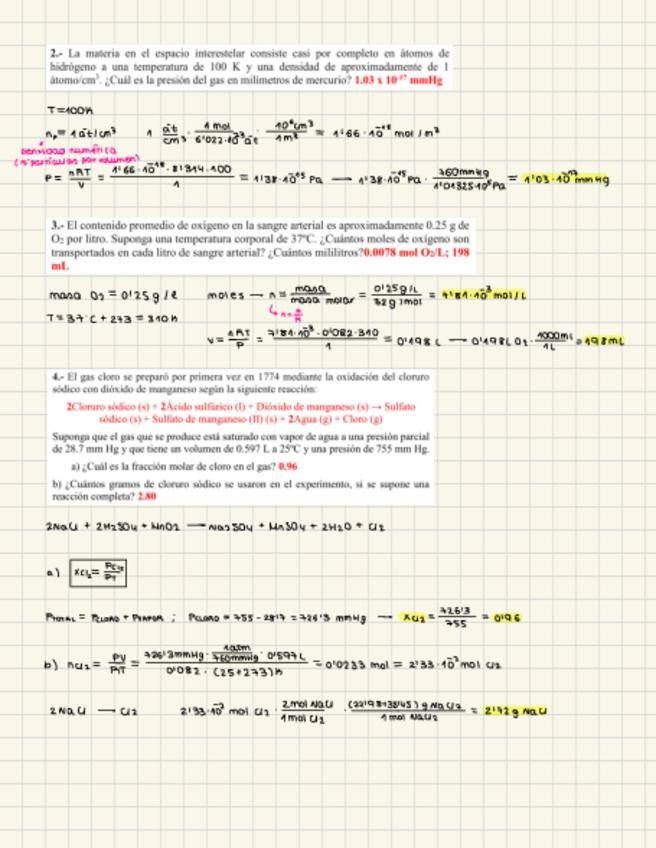 2.- La materia en el espacio interestelar consiste casi por completo en átomos de
hidrógeno a una temperatura de 100 K y una densidad de aproximadamente de 1
átomo/cm³. ¿Cuál es la presión del gas en milímetros de mercurio? 1.03 x 10⁻¹⁷ mmHg
T=100K
nₚ= 1 at/cm³ 1 at/cm³ · 1 mol/6'022·10²³ at · 10⁶cm³/1m³ = 1'66·10⁻¹⁸ mol/m³
Densidad numérica
(nºpartículas por volumen)
P = nRT/V = 1'66·10⁻¹⁸·8'314·100/1 = 1'38·10⁻¹⁵ Pa → 1'38·10⁻¹⁵ Pa · 760mmHg/1'01325·10⁵Pa = 1'03·10⁻¹⁷ mmHg
3.- El contenido promedio de oxígeno en la sangre arterial es aproximadamente 0.25 g de
O₂ por litro. Suponga una temperatura corporal de 37ºC. ¿Cuántos moles de oxígeno son
transportados en cada litro de sangre arterial? ¿Cuántos mililitros?0.0078 mol O₂/L; 198
mL
masa O₂ = 0'25g/l moles → n = masa/masa molar = 0'25g/L/32g/mol = 7'81·10⁻³ mol/L
T=37ºC+273=310K
V = nRT/P = 7'81·10⁻³·0'082·310/1 = 0'198 L → 0'198L O₂ · 1000mL/1L = 198mL
4.- El gas cloro se preparó por primera vez en 1774 mediante la oxidación del cloruro
sódico con dióxido de manganeso según la siguiente reacción:
2Cloruro sódico (s) + 2Ácido sulfúrico (l) + Dióxido de manganeso (s) → Sulfato
sódico (s) + Sulfato de manganeso (II) (s) + 2Agua (g) + Cloro (g)
Suponga que el gas que se produce está saturado con vapor de agua a una presión parcial
de 28.7 mm Hg y que tiene un volumen de 0.597 L a 25ºC y una presión de 755 mm Hg.
a) ¿Cuál es la fracción molar de cloro en el gas? 0.96
b) ¿Cuántos gramos de cloruro sódico se usaron en el experimento, si se supone una
reacción completa? 2.80
2NaCl + 2H₂SO₄ + MnO₂ → Na₂SO₄ + MnSO₄ + 2H₂O + Cl₂
a) XCl₂ = PCl₂/PT
PTOTAL = PCLORO + PVAPOR ; PCLORO = 755 - 28'7 = 726'3 mmHg → XCl₂ = 726'3/755 = 0'96
b) nCl₂ = PV/RT = 726'3mmHg · 1atm/760mmHg · 0'597L/0'082 · (25+273)K = 0'0233 mol = 2'33·10⁻² mol Cl₂
2NaCl → Cl₂ 2'33·10⁻² mol Cl₂ · 2mol NaCl/1mol Cl₂ · = 2'72g NaCl